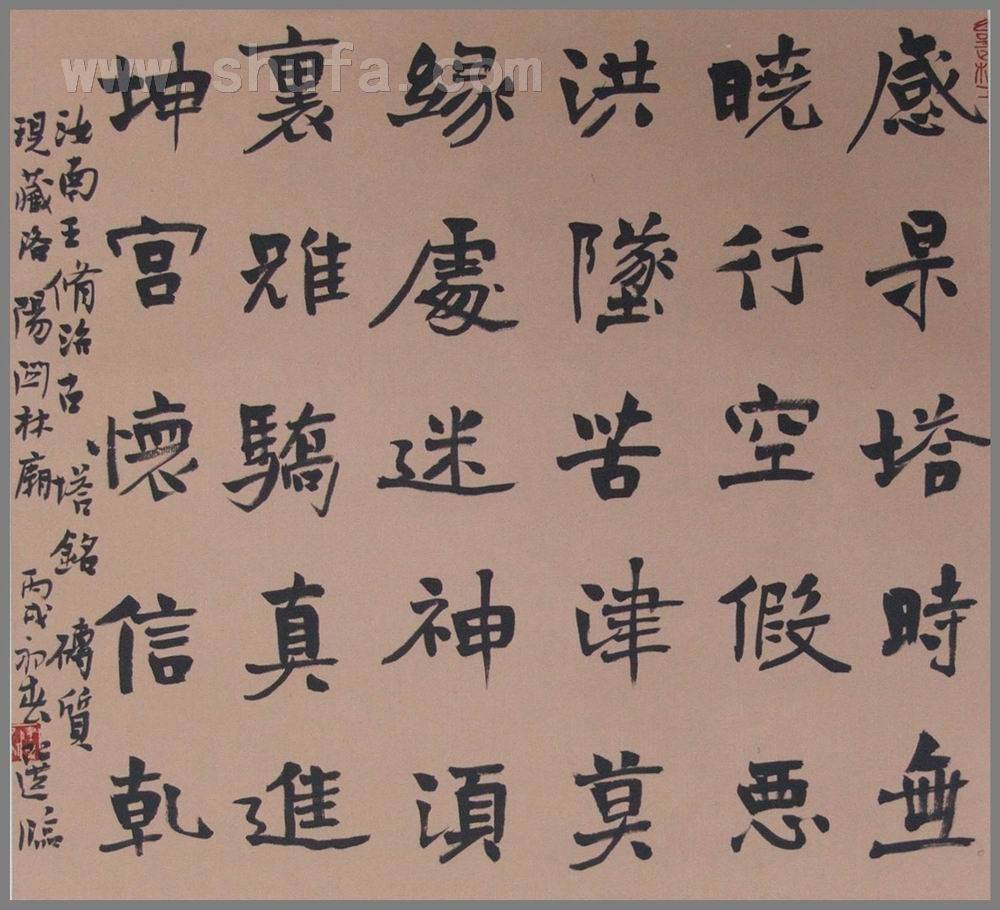 感杲塔時無
曉行空假惡
洪墜苦津莫
緣處迷神須
裏雖驕真進
坤宮懷信乾
汝南王脩治古塔銘磚質
現藏洛陽關林廟 丙戌初春 選臨
www.shufa.com